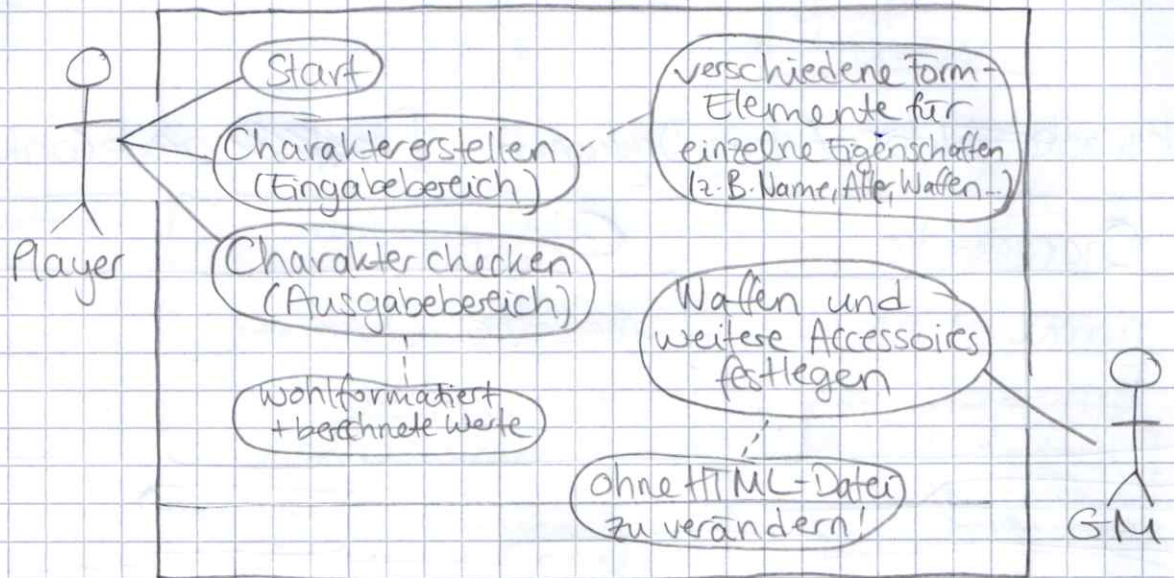 Start
Charaktererstellen
(Eingabebereich)
Player
Charakter checken
(Ausgabebereich)
wohlformatiert
+berechnete Werte
verschiedene Form-
Elemente für
einzelne Eigenschaften
(z.B. Name, Alter, Waffen...)
Waffen und
weitere Accessoires
festlegen
ohne HTML-Datei
zu verändern!
GM